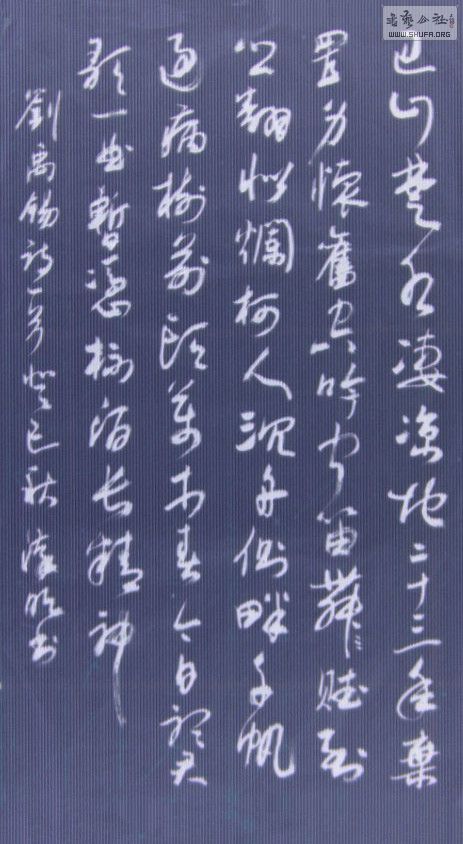 巴山楚水凄凉地二十三年棄
置身懷舊空吟聞笛舞賦到
鄉翻似爛柯人沉舟側畔千帆
過病樹前頭萬木春今日聽君
歌一曲暫憑杯酒長精神
劉禹錫詩一首癸巳秋書
書藝公社
WWW.SHUFA.ORG